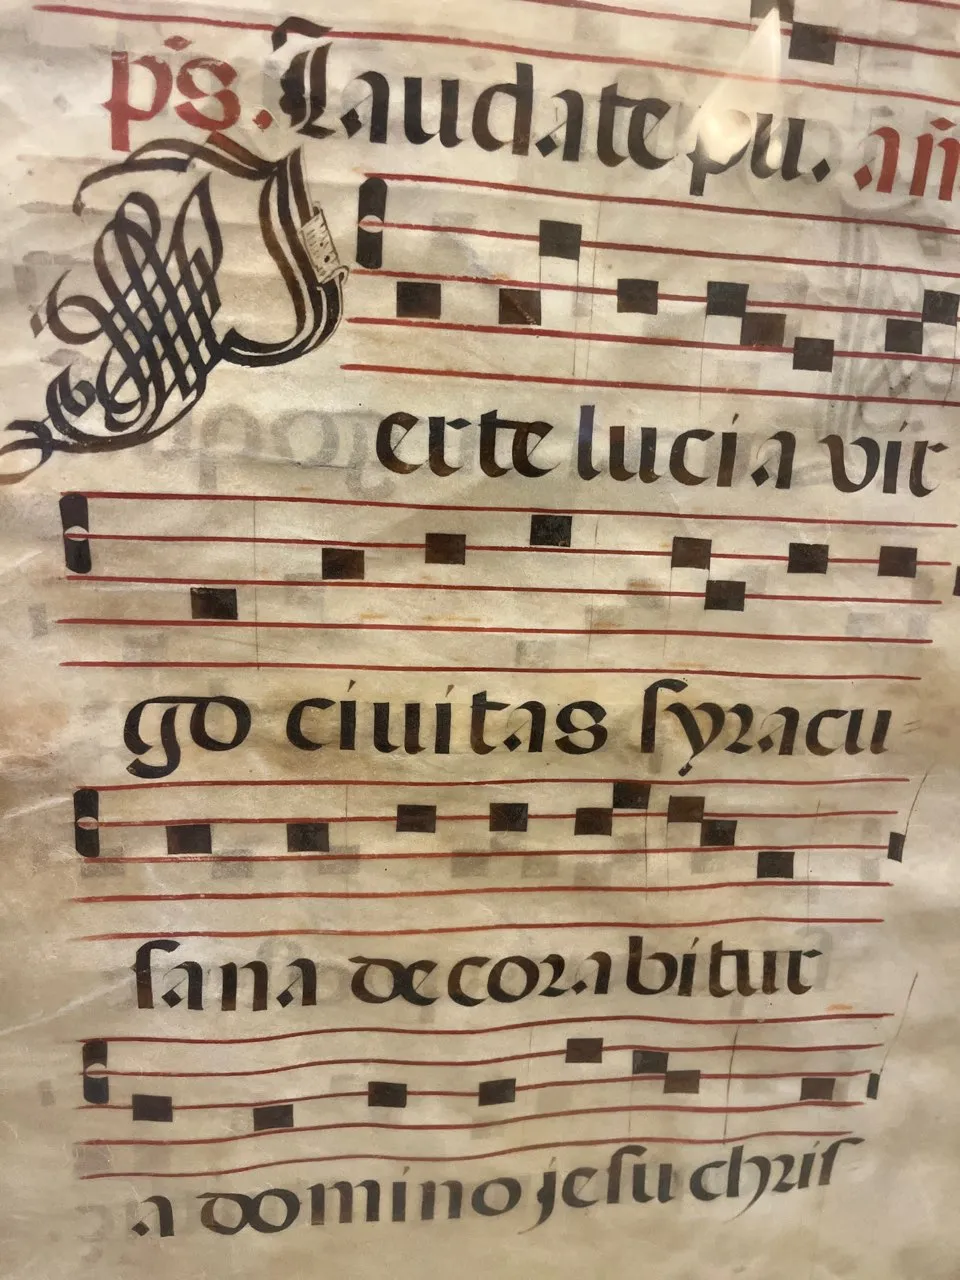 ps. Laudate pu. añ
Per te lucia vir
go ciuitas syracu
sana decorabitur
a domino jesu chris